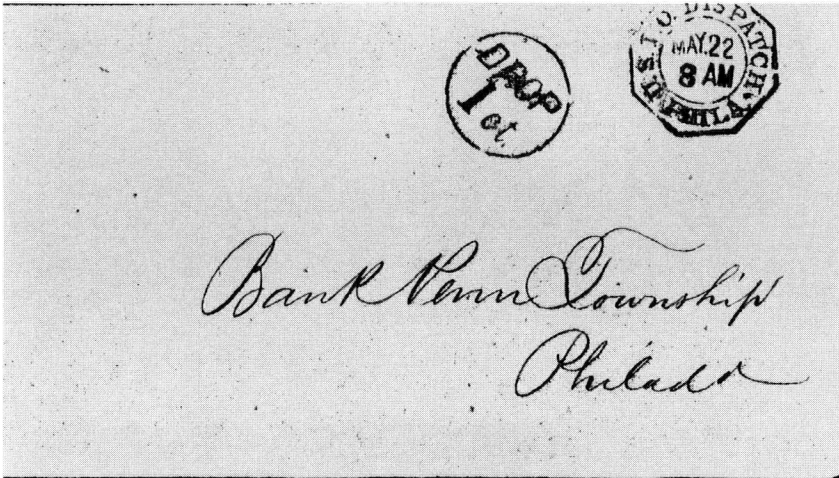 DROP
1 ct.
U.S.P.O. DISPATCH.
MAY.22
8 AM
PHILA.
Bank Penn Township
Philada